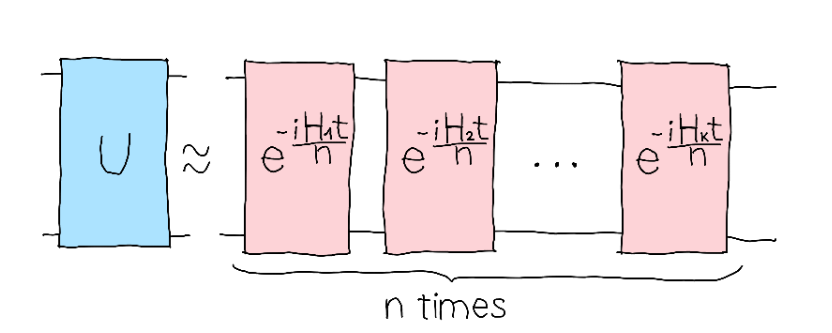 U ≈ e^{-iH₁t/n} e^{-iH₂t/n} ... e^{-iHₖt/n}
n times